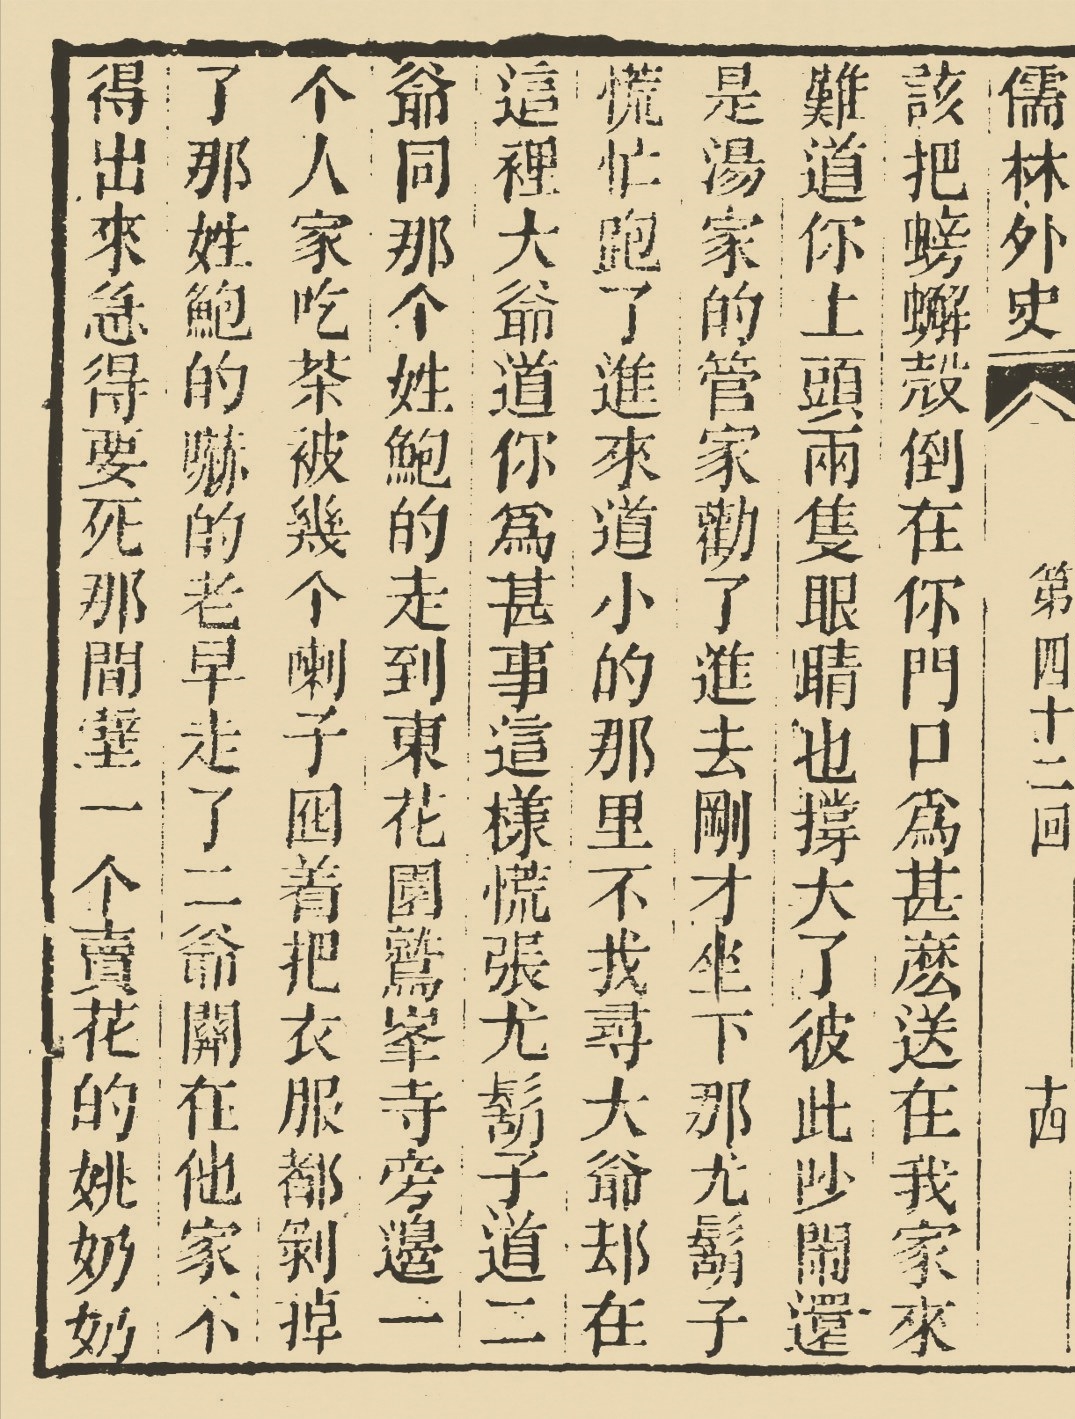 儒林外史 第四十二回 十四
該把螃蠏殻倒在你門口爲甚麽送在我家來
難道你上頭兩隻眼睛也撐大了彼此吵鬧還
是湯家的管家勸了進去剛才坐下那尤鬍子
慌忙跑了進來道小的那里不找尋大爺却在
這裡大爺道你爲甚事這樣慌張尤鬍子道二
爺同那个姓鮑的走到東花園鷲峯寺旁邊一
个人家吃茶被幾个喇子囮着把衣服都剝掉
了那姓鮑的嚇的老早走了二爺關在他家不
得出來急得要死那間壁一个賣花的姚奶奶